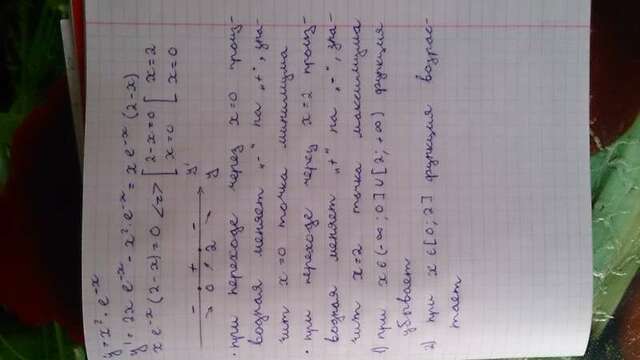 y = x² · e⁻ˣ
y' = 2x e⁻ˣ - x² · e⁻ˣ = x e⁻ˣ (2-x)
x e⁻ˣ (2-x) = 0 <=> [ 2-x=0 [ x=2
x=0 x=0
- + - y'
↘ 0 ↗ 2 ↘ y
· при переходе через x=0 произ-
водная меняет „-“ на „+“, зна-
чит x=0 точка минимума
· при переходе через x=2 произ-
водная меняет „+“ на „-“, зна-
чит x=2 точка максимума
1) при x∈(-∞; 0]∪[2; +∞) функция
убывает
2) при x∈[0; 2] функция возрас-
тает